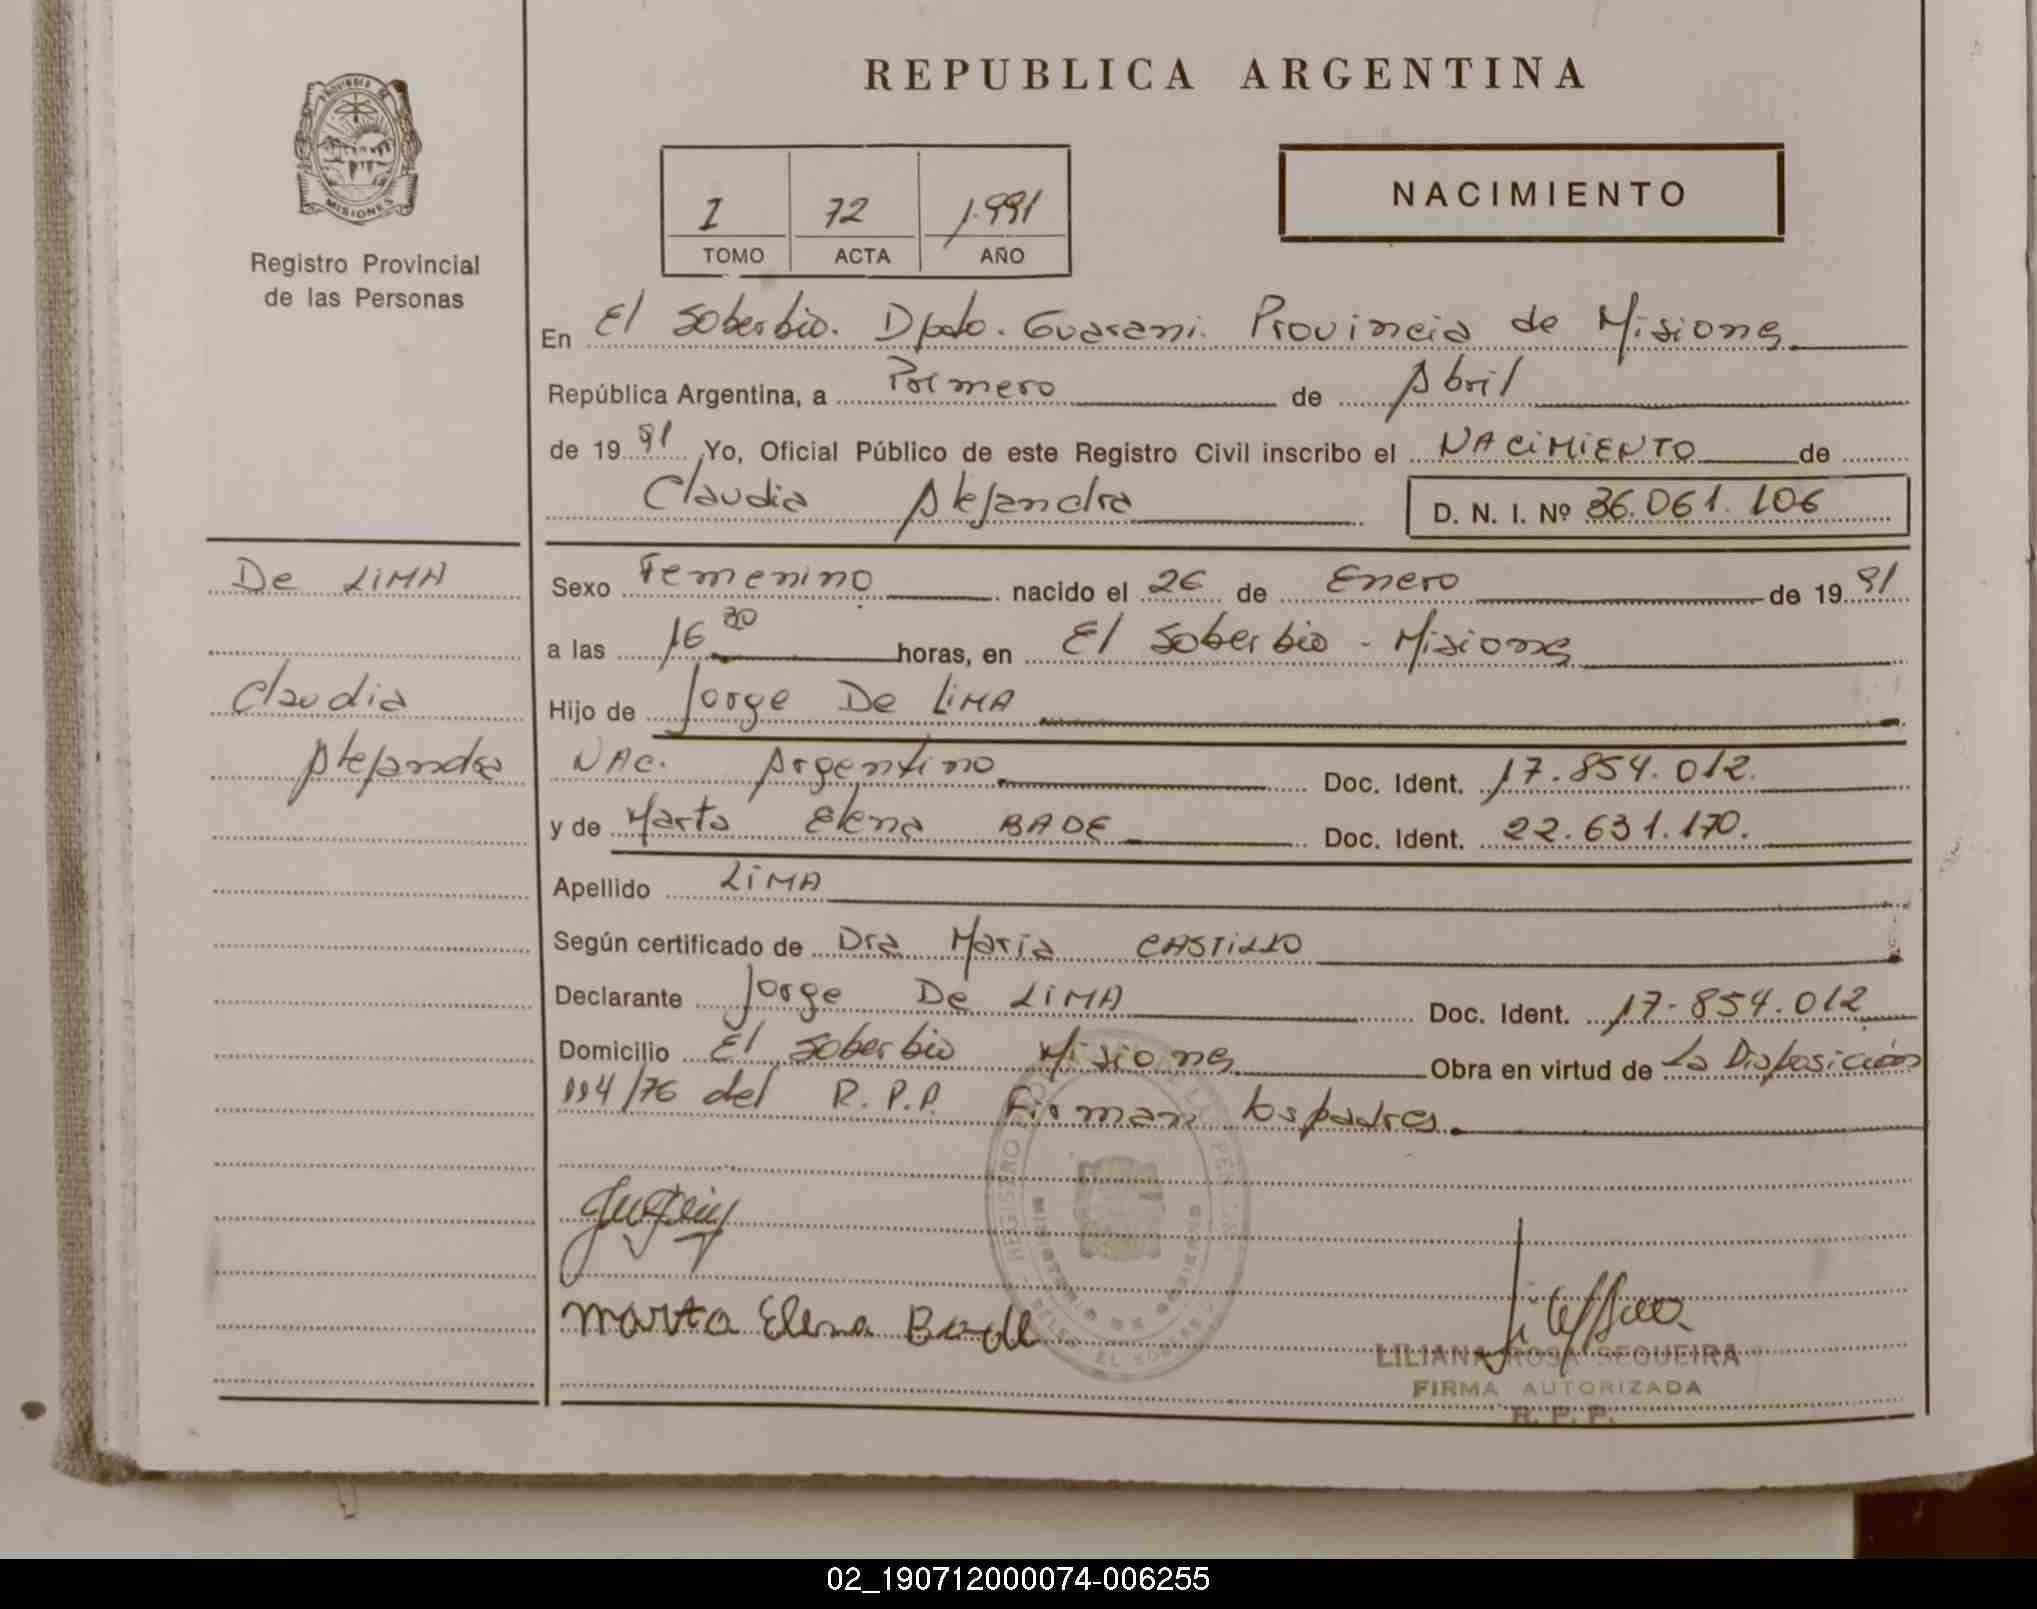 REPUBLICA ARGENTINA
MISIONES
Registro Provincial
de las Personas
I 72 1.991
TOMO ACTA AÑO
NACIMIENTO
En El Soberbio. Dpdo. Guarani. Provincia de Misiones
República Argentina, a Primero de Abril
de 19 91 Yo, Oficial Público de este Registro Civil inscribo el NACIMIENTO de
Claudia Alejandra D. N. I. Nº 36.061.106
De LIMA
Claudia
Alejandra
Sexo Femenino nacido el 26 de Enero de 19 91
a las 16 30 horas, en El Soberbio - Misiones
Hijo de Jorge De LIMA
NAC. Argentino Doc. Ident. 17.854.012.
y de Marta Elena BADE Doc. Ident. 22.631.170.
Apellido LIMA
Según certificado de Dra Maria CASTILLO
Declarante Jorge De LIMA Doc. Ident. 17-854.012
Domicilio El Soberbio Misiones Obra en virtud de La Disposición
114/76 del R.P.P. Firman los padres.
Marta Elena Bade
LILIANA ROSA SEQUEIRA
FIRMA AUTORIZADA
R. P. P.
02_190712000074-006255